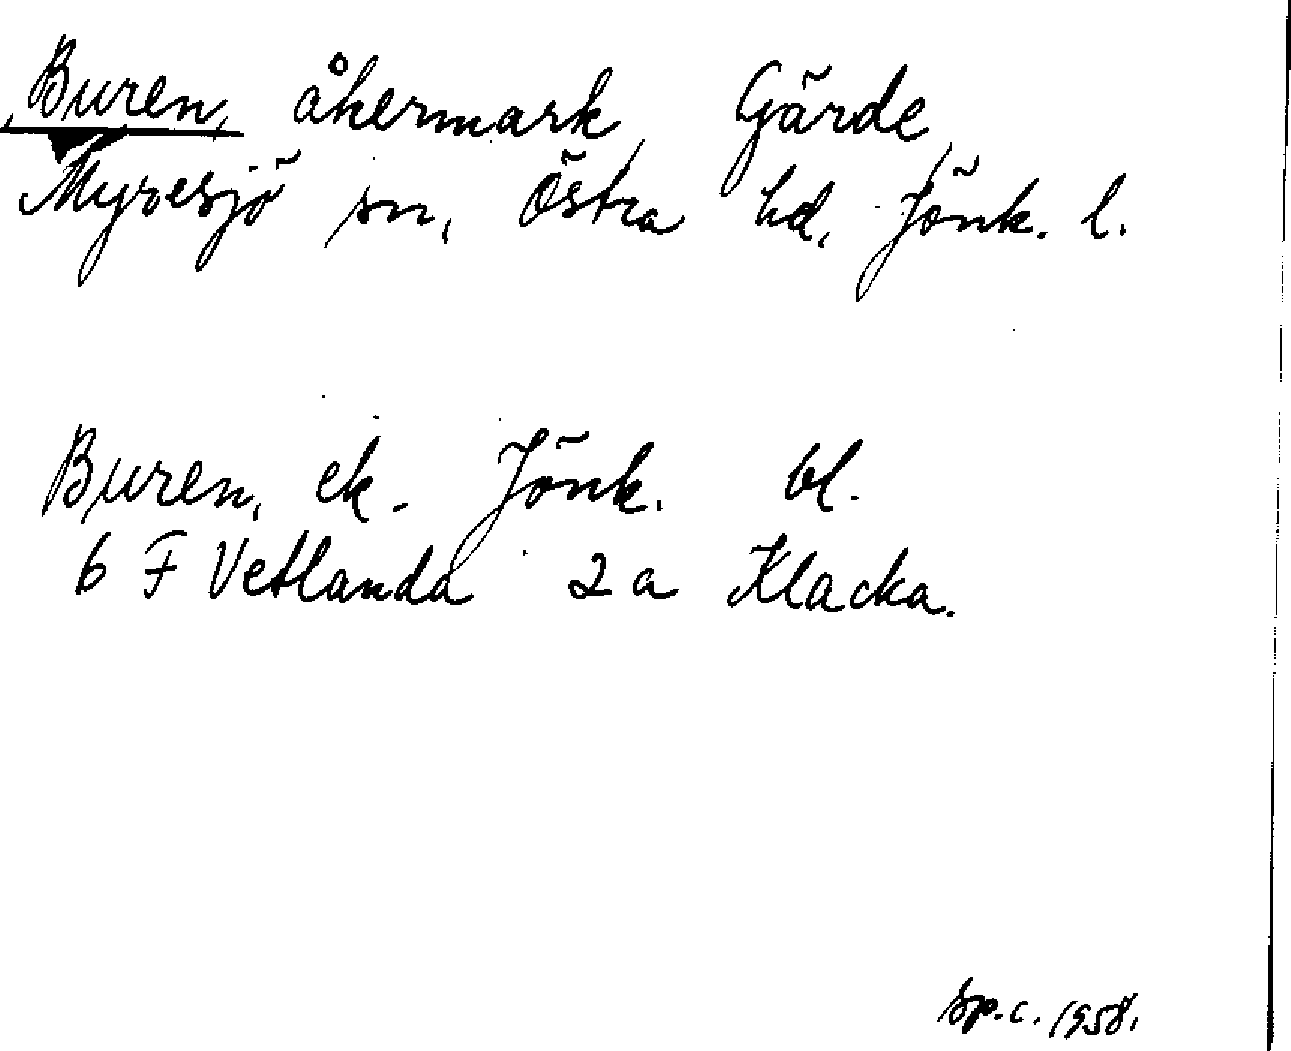 Buren, åkermark, Gärde,
Myresjö sn, Östra hd, Jönk. l.
Buren, ek. Jönk. bl.
6 F Vetlanda 2 a Klacka.
sp.c. 1958.